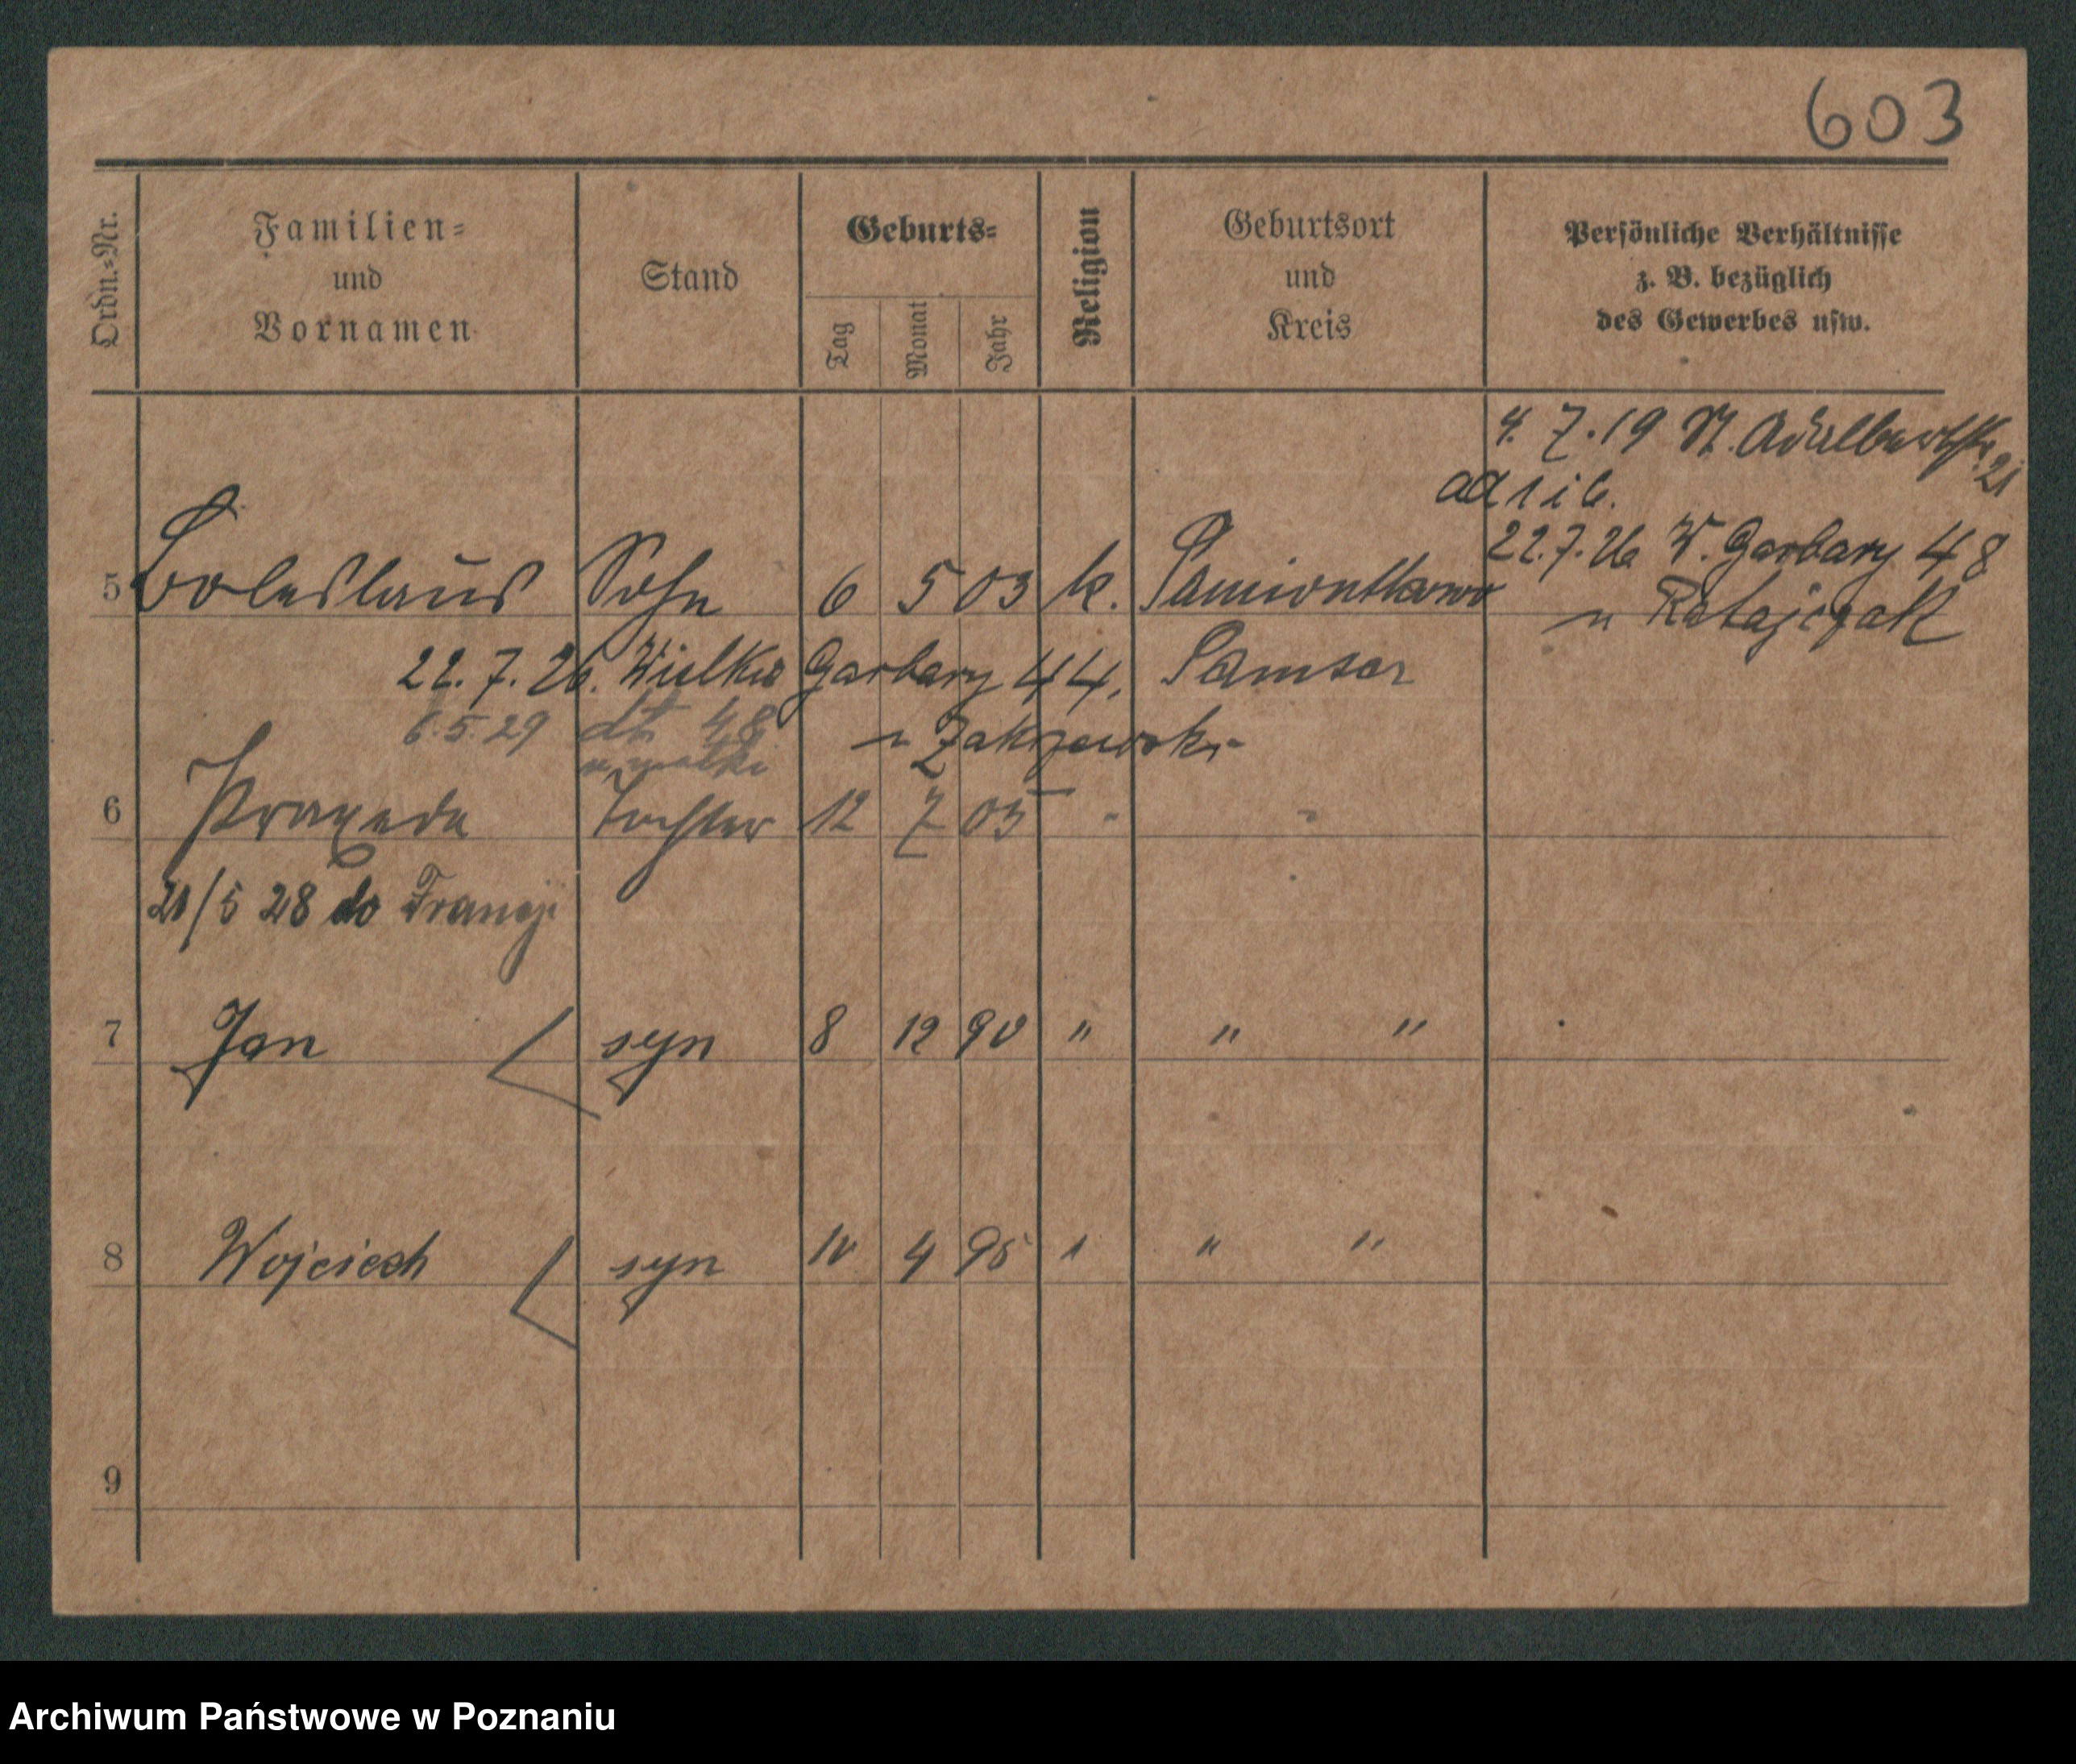 603
Ordn.-Nr.
Familien-
und
Vornamen
Stand
Geburts-
Tag
Monat
Jahr
Religion
Geburtsort
und
Kreis
Persönliche Verhältnisse
z. B. bezüglich
des Gewerbes usw.
4. 7. 19 St. Adalbertstr. 21
ad 1 i 6.
22. 7. 26 W. Garbary 48
u Ratajczak
5 Boleslaus Sohn 6 5 03 k. Pamiontkowo
22. 7. 26. Wielkie Garbary 44. Samter
6. 5. 29 dt 48
u Zakrzewski
u matki
6 Praxeda Tochter 12 7 05 " "
21/5 28 do Francji
7 Jan syn 8 12 90 " " "
8 Wojciech syn 10 4 95 " " "
9
Archiwum Państwowe w Poznaniu